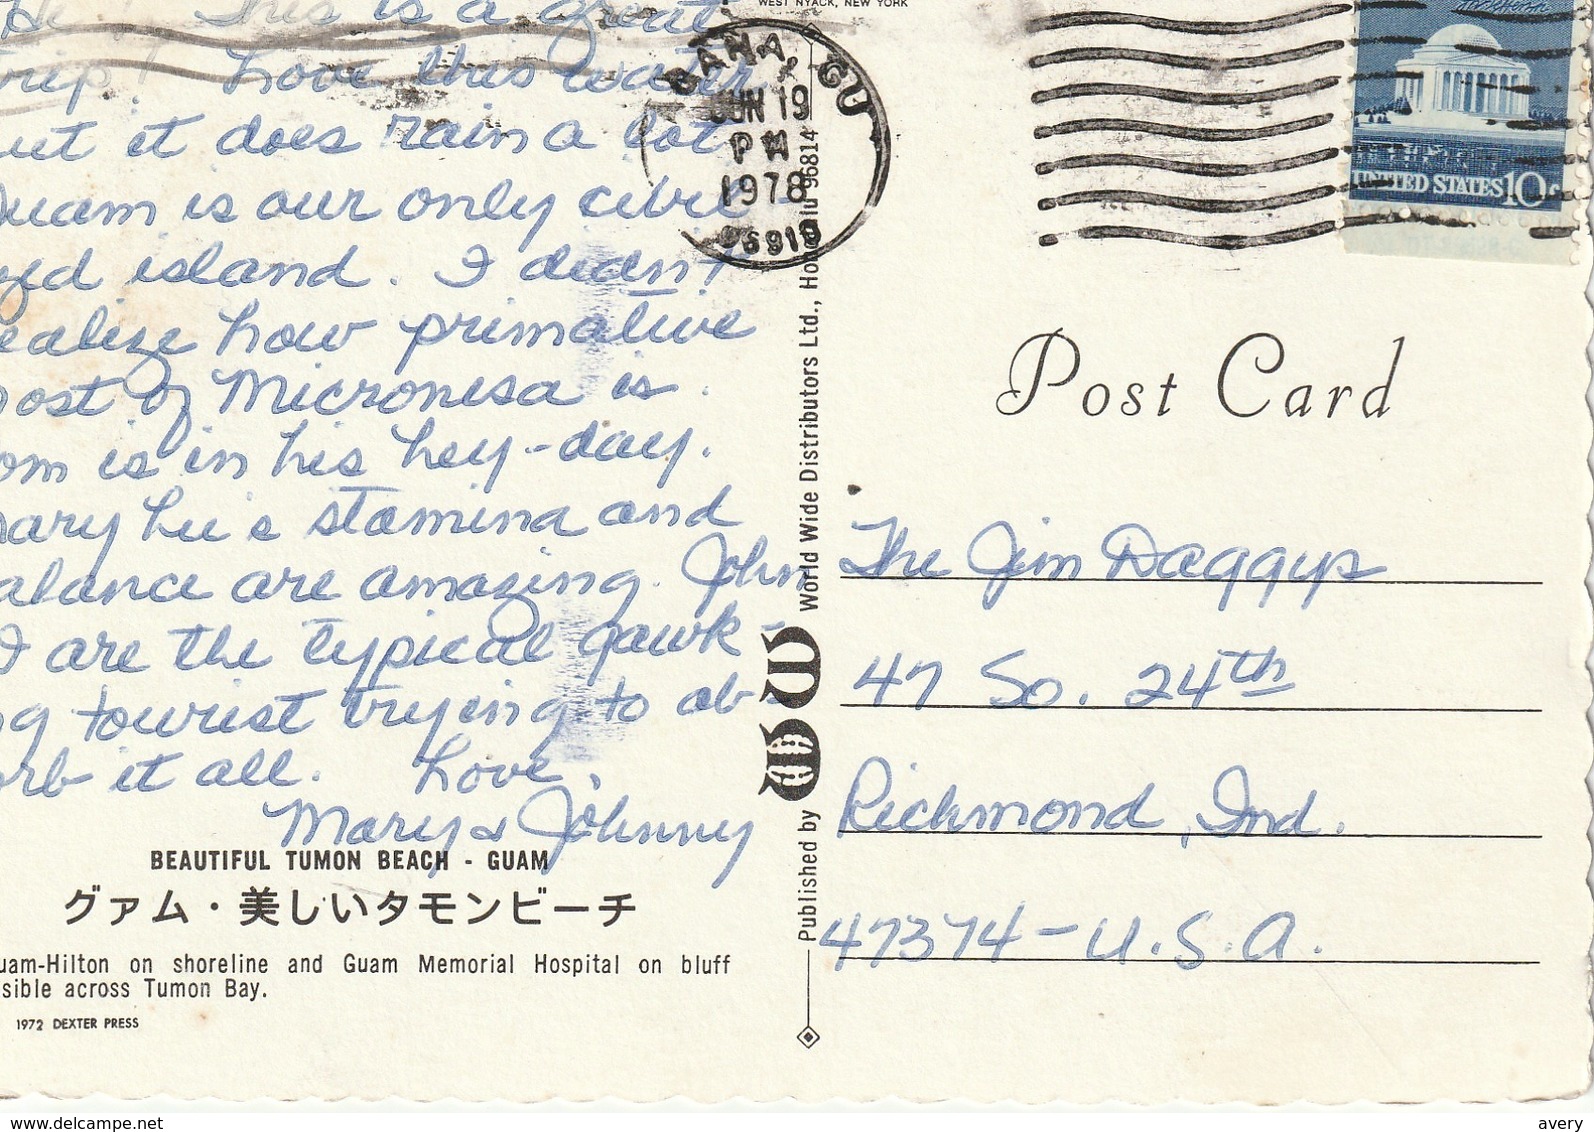 He! This is a great
rip! Love this water
ut it does rain a lot
uam is our only civil
zed island. I didn't
ealize how primative
ost of Micronesa is.
om is in his hey-day.
ary Lu's stamina and
alance are amazing. John
I are the typical gawk-
ng tourist trying to ab-
orb it all. Love,
Mary & Johnny
BEAUTIFUL TUMON BEACH - GUAM
グァム・美しいタモンビーチ
uam-Hilton on shoreline and Guam Memorial Hospital on bluff
sible across Tumon Bay.
1972 DEXTER PRESS
WEST NYACK, NEW YORK
Published by WW World Wide Distributors Ltd., Honolulu 96814
AGANA GU
JUN 19
PM
1978
96910
UNITED STATES 10c
Post Card
The Jim Daggys
47 So. 24th
Richmond, Ind.
47374 - U.S.A.
www.delcampe.net
avery